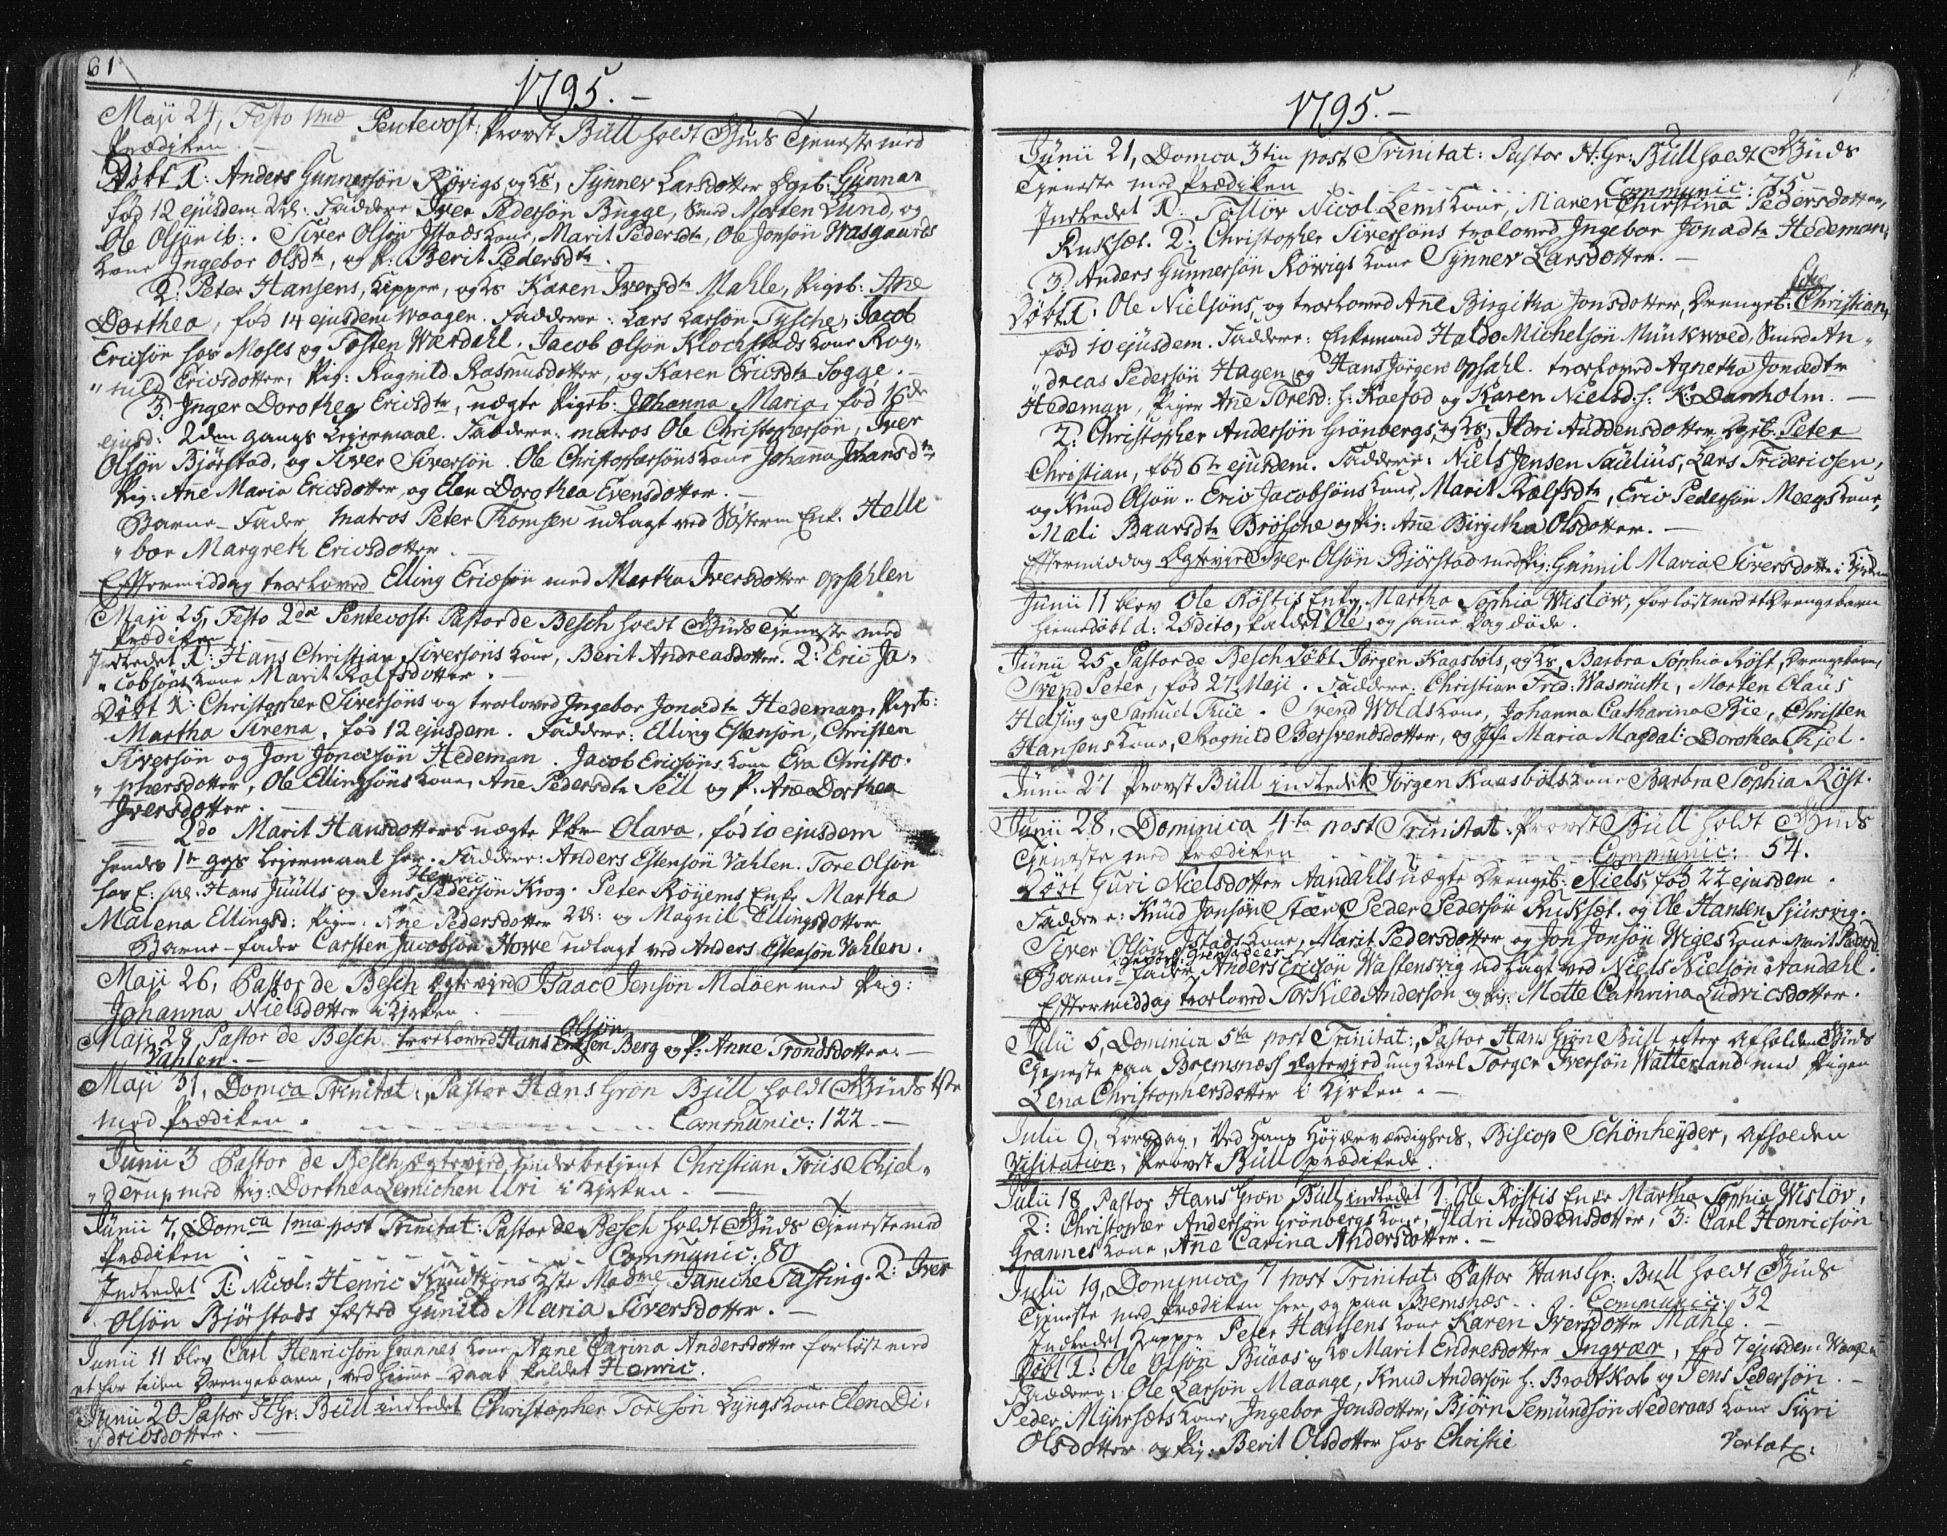 61
1795.-
Maji 24, Festo 1mæ Pentecost: Provst Büll holdt Guds Tjeneste med
Prædiken
Døbt 1: Anders Gunnersøn Røvigs og Hs, Synnev Larsdotter Dgeb: Gunnar
fød 12 ejusdem. Faddere Iver Pedersøn Bugge, Smed Morten Lund, og
Ole Olsøn ib:. Siver Olsøn Istads kone, Marit Pedersdtr, Ole Jonsøn Waagaards
kone Ingebor Olsdtr, og P: Berit Pedersdtr.
2: Peter Hansens, Kipper, og Hs Karen Iversdtr Mahle, Pigeb: Ane
Dorthea, fød 14 ejusdem Vaagen. Faddere: Lars Larsøn Tysche, Jacob
Ericsøn hos Moses og Tosten Werdahl. Jacob Olsøn Klochstads kone Rag-
"nild Ericsdotter, Pig: Ragnild Rasmusdotter, og Karen Ericsdtr Sogge.-
3, Inger Dorothea Ericsdtr, uægte Pigeb: Johanna Maria, fød 16de
ejusd: 2den gangs Lejermaal. Faddere: matros Ole Christophersøn, Iver
Olsøn Bjørstad, og Siver Siversøn. Ole Christophersøns kone Johana Johansdtr
Pig: Ane Maria Ericsdotter, og Elen Dorothea Evensdotter.-
Barne-Fader matros Peter Thomsen udlagt ved Søsteren Enk. Helle
"bor Margreth Ericsdotter.-
Eftermiddag trolovet Elling Ericsøn med Martha Iversdotter Opsahlen
Maji 25, Festo 2da Pentecost: Pastor de Besch holdt Guds Tjeneste med
Prædiken
Indledet 1: Hans Christian Siversøns kone, Berit Andreasdotter. 2: Eric Ja-
"cobsøns kone Marit Rolfsdotter.
Døbt 1: Christopher Siversøns og troloved Ingebor Jonædtr Hedeman, Pigeb:
Martha Sirena, fød 12 ejusdem. Faddere: Elling Estensøn, Christen
Siversøn og Jon Jonæsøn Hedeman. Jacob Ericsøns kone Eva Christo-
"phersdotter, Ole Ellingsøns kone, Ane Pedersdtr Sell og P: Ane Dorthea
Iversdotter.-
2do Marit Hansdotters uægte Pbr Olava, fød 10 ejusdem
hendes 1te ggs Lejermaal her. Faddere: Anders Estensøn Vahlen. Tore Olsøn
hos E: sal: Hans Juulls og Jens Henric Pedersøn Krog. Peter Røyems Enke Martha
Malena Ellingsd: Piger: Ane Pedersdotter og Magnil Ellingsdotter
Barne-fader Carsten Jacobsøn Howe udlagt ved Anders Estensøn Vahlen.
Maji 26, Pastor de Besch Egtevjed Isaac Jensøn Meløen med Pig:
Johanna Nielsdotter i Kjrken.-
Maji 28, Pastor de Besch. trolovet Hans Olsøn Berg og P: Anne Trondsdotter.-
Vahlen.-
Maji 31, Domca Trinitat:, Pastor Hans Grøn Büll holdt Guds Tste
med Prædiken. Communic: 122.-
Junii 3 Pastor de Besch egtevjed Underbetjent Christian Friis Schjel-
"derup med Pig: Dorthea Lemichen Uri i Kjrken.-
Junii 7, Domca 1ma post Trinitat: Pastor de Besch holdt Guds Tjeneste med
Prædiken: Communic: 80
Indledet 1: Nicol: Henric Knudtzons Hste Madme Taniche Fasting. 2: Iver
Olsøn Bjørstads fæsted Gunild Maria Siversdotter.-
Junii 11 blev Carl Henricsøn Grannes kone Anne Carina Andersdotter forløst med
et før tiden Drengebarn, ved Hjemme-daab kaldet Henric.
Junii 20 Pastor H Gr: Büll indledet Christopher Toresøn Lyngs kone Elen Di-
"dricsdotter.-
1795.-
Junii 21, Domca 3tia post Trinitat: Pastor H. Gr: Büll holdt Guds
Tjeneste med Prædiken Communic: 75
Indledet 1: Toslør Nicol. Lems kone, Maren Christina Pedersdotter,
Ruksæt. 2: Christopher Siversøns trolovet Ingebor Jonædtr Hedeman,
3, Anders Gunnersøn Røwigs kone Synnev Larsdotter.-
Døbt 1: Ole Nielsøns og trolovet Ane Birgitha Jonsdotter, Drengeb: Christian,
fød 10 ejusdem. Faddere: Enkemand Haldo Michelsøn Munkwold, Smed An-
"dreas Pedersøn Hagen og Hans Jørgen Opsahl. trolovet Agnetha Jonædtr
Hedeman, Piger Ane Toresd: h: Kaefod og Karen Nielsd: h: K: Danholm.-
2: Christopher Andersøn Grønbergs og Hs, Ildri Auddensdotter Dgeb: Peter
Christian, fød 6te ejusdem. Faddere: Niels Jensen Saulius, Lars Fridericsen,
og Knud Olsøn. Eric Jacobsøns kone, Marit Rolfsdtr, Eric Pedersøn Meegs kone,
Mali Baarsdtr Brøsche og Pig: Ane Birgitha Olsdotter.-
Eftermiddag Egtevjed Iver Olsøn Bjørstad med Pig: Gunnil Maria Siversdotter i Kjrken
Junii 11 blev Ole Røstis Enke Martha Sophia Wisløw, forløst med et Drengebarn
hiemedøbt d: 25 dito, kaldet Ole, og same Dag døde.
Junii 25, Pastor de Besch døbt Jørgen Kaasbøls, og Hs, Barbra Sophia Røst, Drengebarn,
Svend Peter, fød 27 Maji. Faddere: Christian Frid: Wasmuth, Morten Olaus
Helsing og Samuel Riie. Svend Wolds kone, Johanna Catharina Bie, Christen
Hansens kone, Ragnild Bersvendsdotter, og Jfr Maria Magdal: Dorothea Kjel.
Junii 27 Provst Büll indledet Jørgen Kaasbøls kone Barbra Sophia Røst.
Junii 28, Dominica 4ta post Trinitat: Provst Büll holdt Guds
Tjeneste med Prædiken Communic: 54.
Døbt Guri Nielsdotter Aandahls uægte Drengeb: Niels, fød 22 ejusdem.
Faddere: Knud Jonsøn Steen, Peder Pedersøn Ruksæt. og Ole Hansen Sjursvig.
Siver Olsøn Istads kone, Marit Pedersdotter og Jon Jonsøn Wiges kone Marit
Barne-fader Anders Ericsøn Wastensvig udlagt ved Niels Nielsøn Aandahl.
Eftermiddag trolovet Torkild Andersøn og Pig: Mette Cathrina Ludvicsdotter.
Julii 5, Dominica 5ta post Trinitat:, Pastor Hans Grøn Büll efter afholden Guds
Tjeneste paa Bremsnæs egtevjed ung karl Torger Iversøn Watterland med Pigen
Lena Christophersdotter i Kjrken.-
Julii 9, Torsdag, Ved Hans Høyærværdigheds, Biscop Schönheyder, afholden
Visitation, Provst Büll prædikede.
Julii 18, Pastor Hans Grøn Büll indledet 1: Ole Røstis Enke Martha Sophia Wisløv,
2: Christopher Andersøn Grønbergs kone, Ildri Auddensdotter, 3: Carl Henricsøn
Grannes kone, Ane Carina Andersdotter.-
Julii 19, Dominica 7 post Trinitat: Pastor Hans Gr: Büll holdt Guds
Tjeneste med Prædiken her, og paa Bremsnæs. Communic: 32
Indledet Kipper Peter Hansens kone Karen Iversdotter Mahle.-
Døbt 1: Ole Olsøn Büaas og Hs Marit Endresdotter Ingvær, fød 7 ejusdem
Faddere: Ole Larsøn Maange, Knud Andersøn h: Brodtkorb og Jens Pedersøn.-
Peder Myhrsæts kone, Ingebor Jonsdotter, Bjørn Semundsøn Nederaas kone Siri
Olsdotter og Pig: Berit Olsdotter hos Christie
Vertatx: